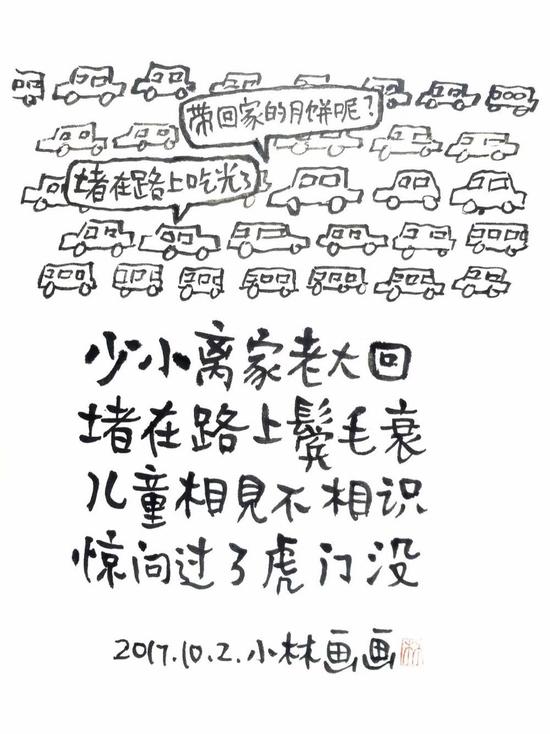 带回家的月饼呢?
堵在路上吃光了
少小离家老大回
堵在路上鬓毛衰
儿童相見不相识
惊问过了虎门没
2017.10.2.小林画画
林